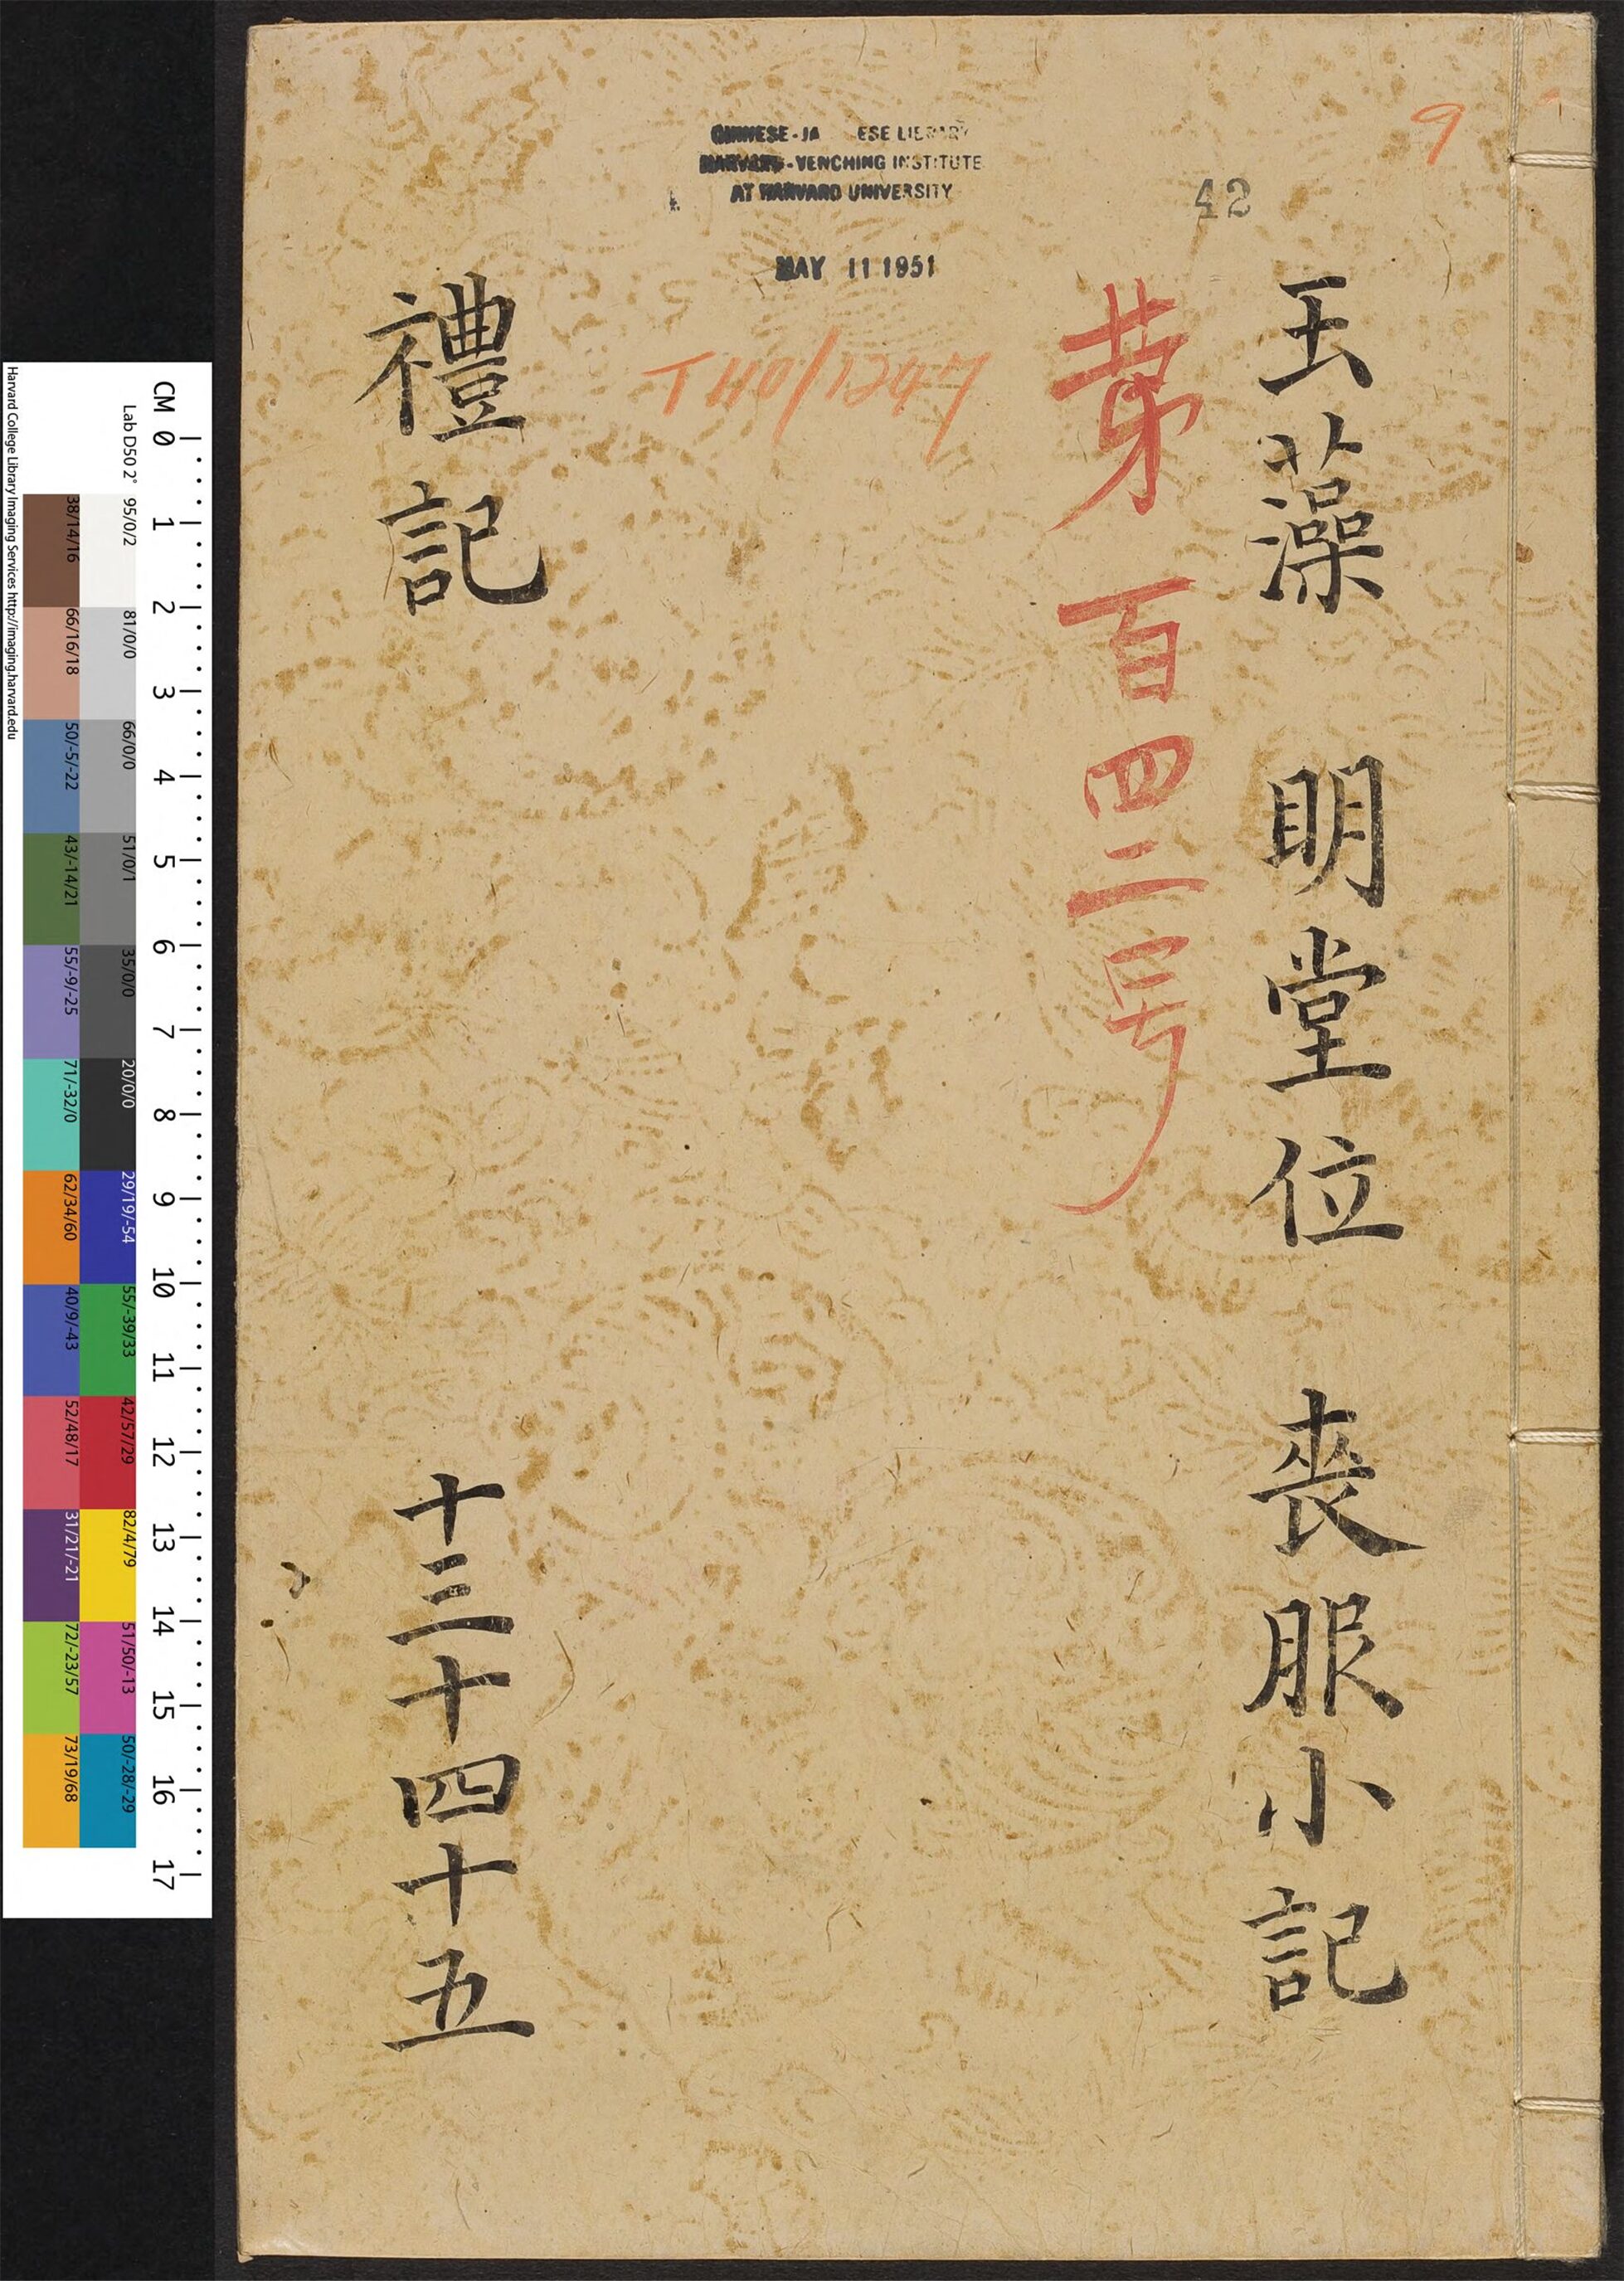 玉藻 明堂位 喪服小記
9
42
第百四二号
CHINESE-JA ESE LIBRARY
HARVARD-YENCHING INSTITUTE
AT HARVARD UNIVERSITY
MAY 11 1951
禮記 十三十四十五
CM 0 1 2 3 4 5 6 7 8 9 10 11 12 13 14 15 16 17
Lab D50 2° 95/0/2 81/0/0 66/0/0 51/0/1 35/0/0 20/0/0 29/19/-54 55/-39/33 42/57/29 82/4/79 51/50/-13 50/-28/-29
38/14/16 66/16/18 50/-5/-22 43/-14/21 55/-9/-25 71/-32/0 62/34/60 40/9/-43 52/48/17 31/21/-21 72/-23/57 73/19/68
Harvard College Library Imaging Services http://imaging.harvard.edu